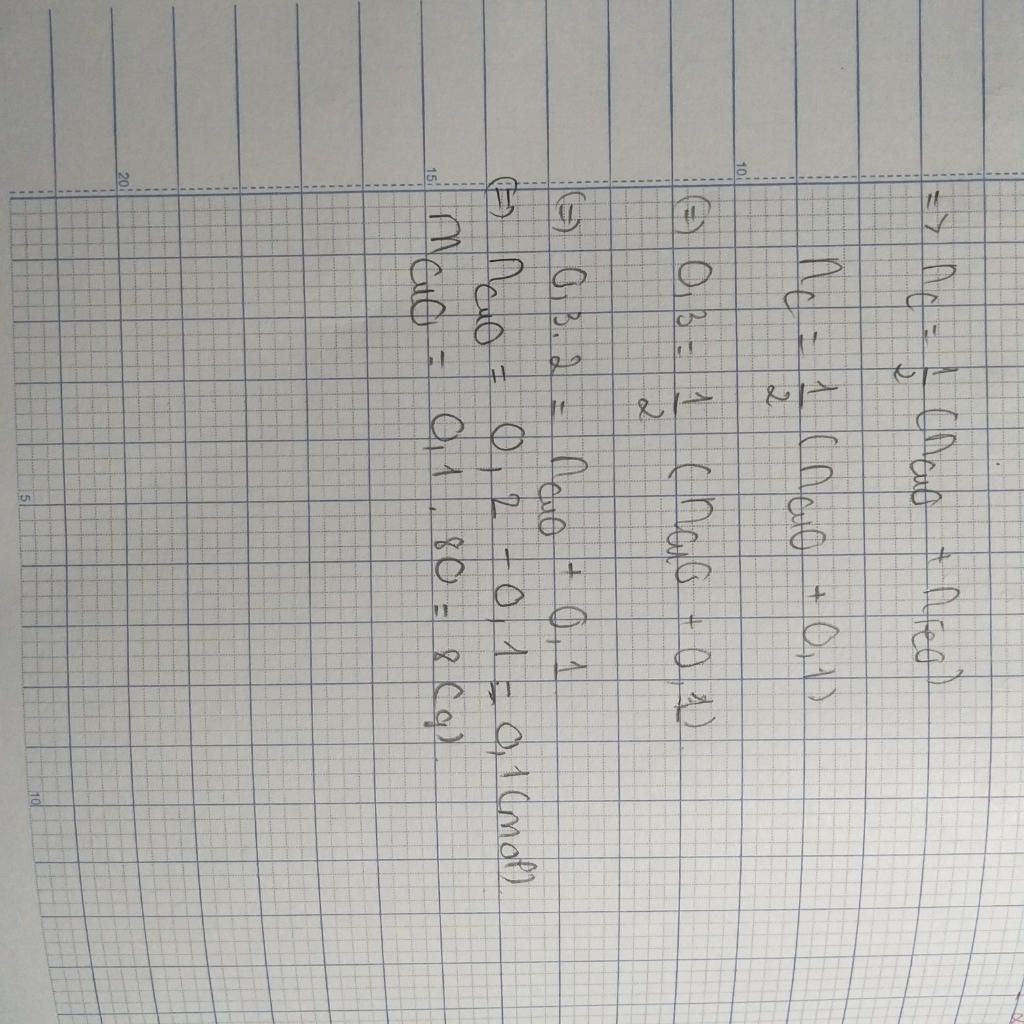 => nC = 1/2 (nCuO + nFeO)
nC = 1/2 (nCuO + 0,1)
(=) 0,3 = 1/2 (nCuO + 0,1)
(=) 0,3.2 = nCuO + 0,1
(=) nCuO = 0,2 - 0,1 = 0,1 (mol)
mCuO = 0,1 . 80 = 8 (g)
5
10
10
15
20